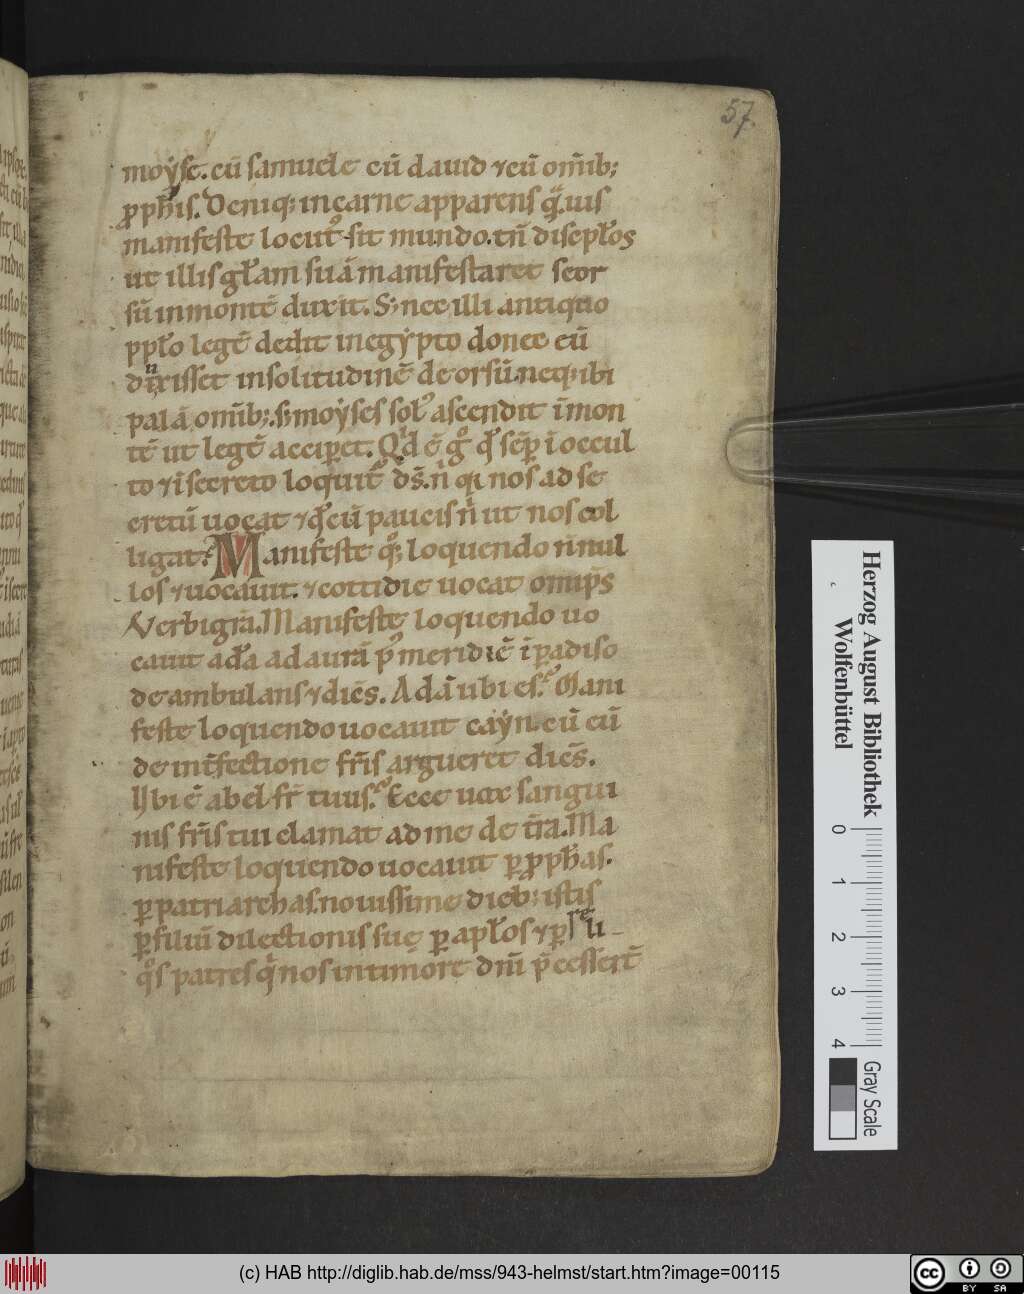 57
moẏse. cū samuele cū dauid ⁊ cū om̄ib;
ꝓph̄is. Deniq; in carne apparens q̄uis
manifeste locut᷒ sit mundo. tn̄ discipl̄os
ut illis gl̄am suā manifestaret seor
sū in montē duxit. S; nec illi antiquo
ppl̄o legē dedit in egẏpto donec cū
duxisset in solitudinē deorsū. neq; ibi
palā om̄ib;. s; moẏses sol᷒ ascendit ī mon
tē ut legē acciꝑet. Qd ē gͦ qd̄ semꝑ ī occul
to ⁊ ī secreto loquit᷑ ds̄. n̄ qi nos ad se
cretū uocat ⁊ qd̄ cū paucis n̄ ut nos col
ligat? Manifeste qͦ; loquendo n̄nul
los ⁊ uocauit. ⁊ cottidie uocat omip̄s
Verbi grā. Manifeste loquendo uo
cauit adā ad aurā p᷒ meridiē ī ꝑadiso
deambulans ⁊ dicēs. Adā ubi es? Mani
feste loquendo uocauit caẏn. cū eū
de int̄fectione fr̄is argueret dicēs.
Ubi ē abel fr̄ tuus? Ecce uox sangui
nis fr̄is tui clamat ad me de tr̄a. Ma
nifeste loquendo uocauit ꝑ ꝓph̄as.
ꝑ patriarchas. nouissime dieb; istis
ꝑ filiū dilectionis suę ꝑ apl̄os ⁊ ꝑ
qͦs patres q̇ nos in timore dn̄i p̄cesser̄t
Herzog August Bibliothek
Wolfenbüttel
0 1 2 3 4
Gray Scale
(c) HAB http://diglib.hab.de/mss/943-helmst/start.htm?image=00115
cc BY SA